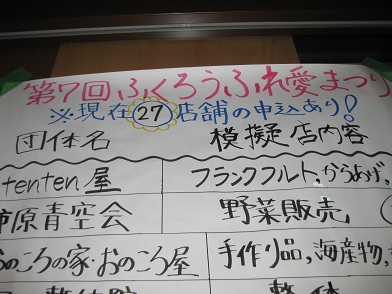 第7回ふくろうふれ愛まつり
※現在27店舗の申込あり!
団体名 模擬店内容
tenten屋 フランクフルト,からあげ,
原青空会 野菜販売
のころの家・おのころ屋 手作り品,海産物,
整体院 整体